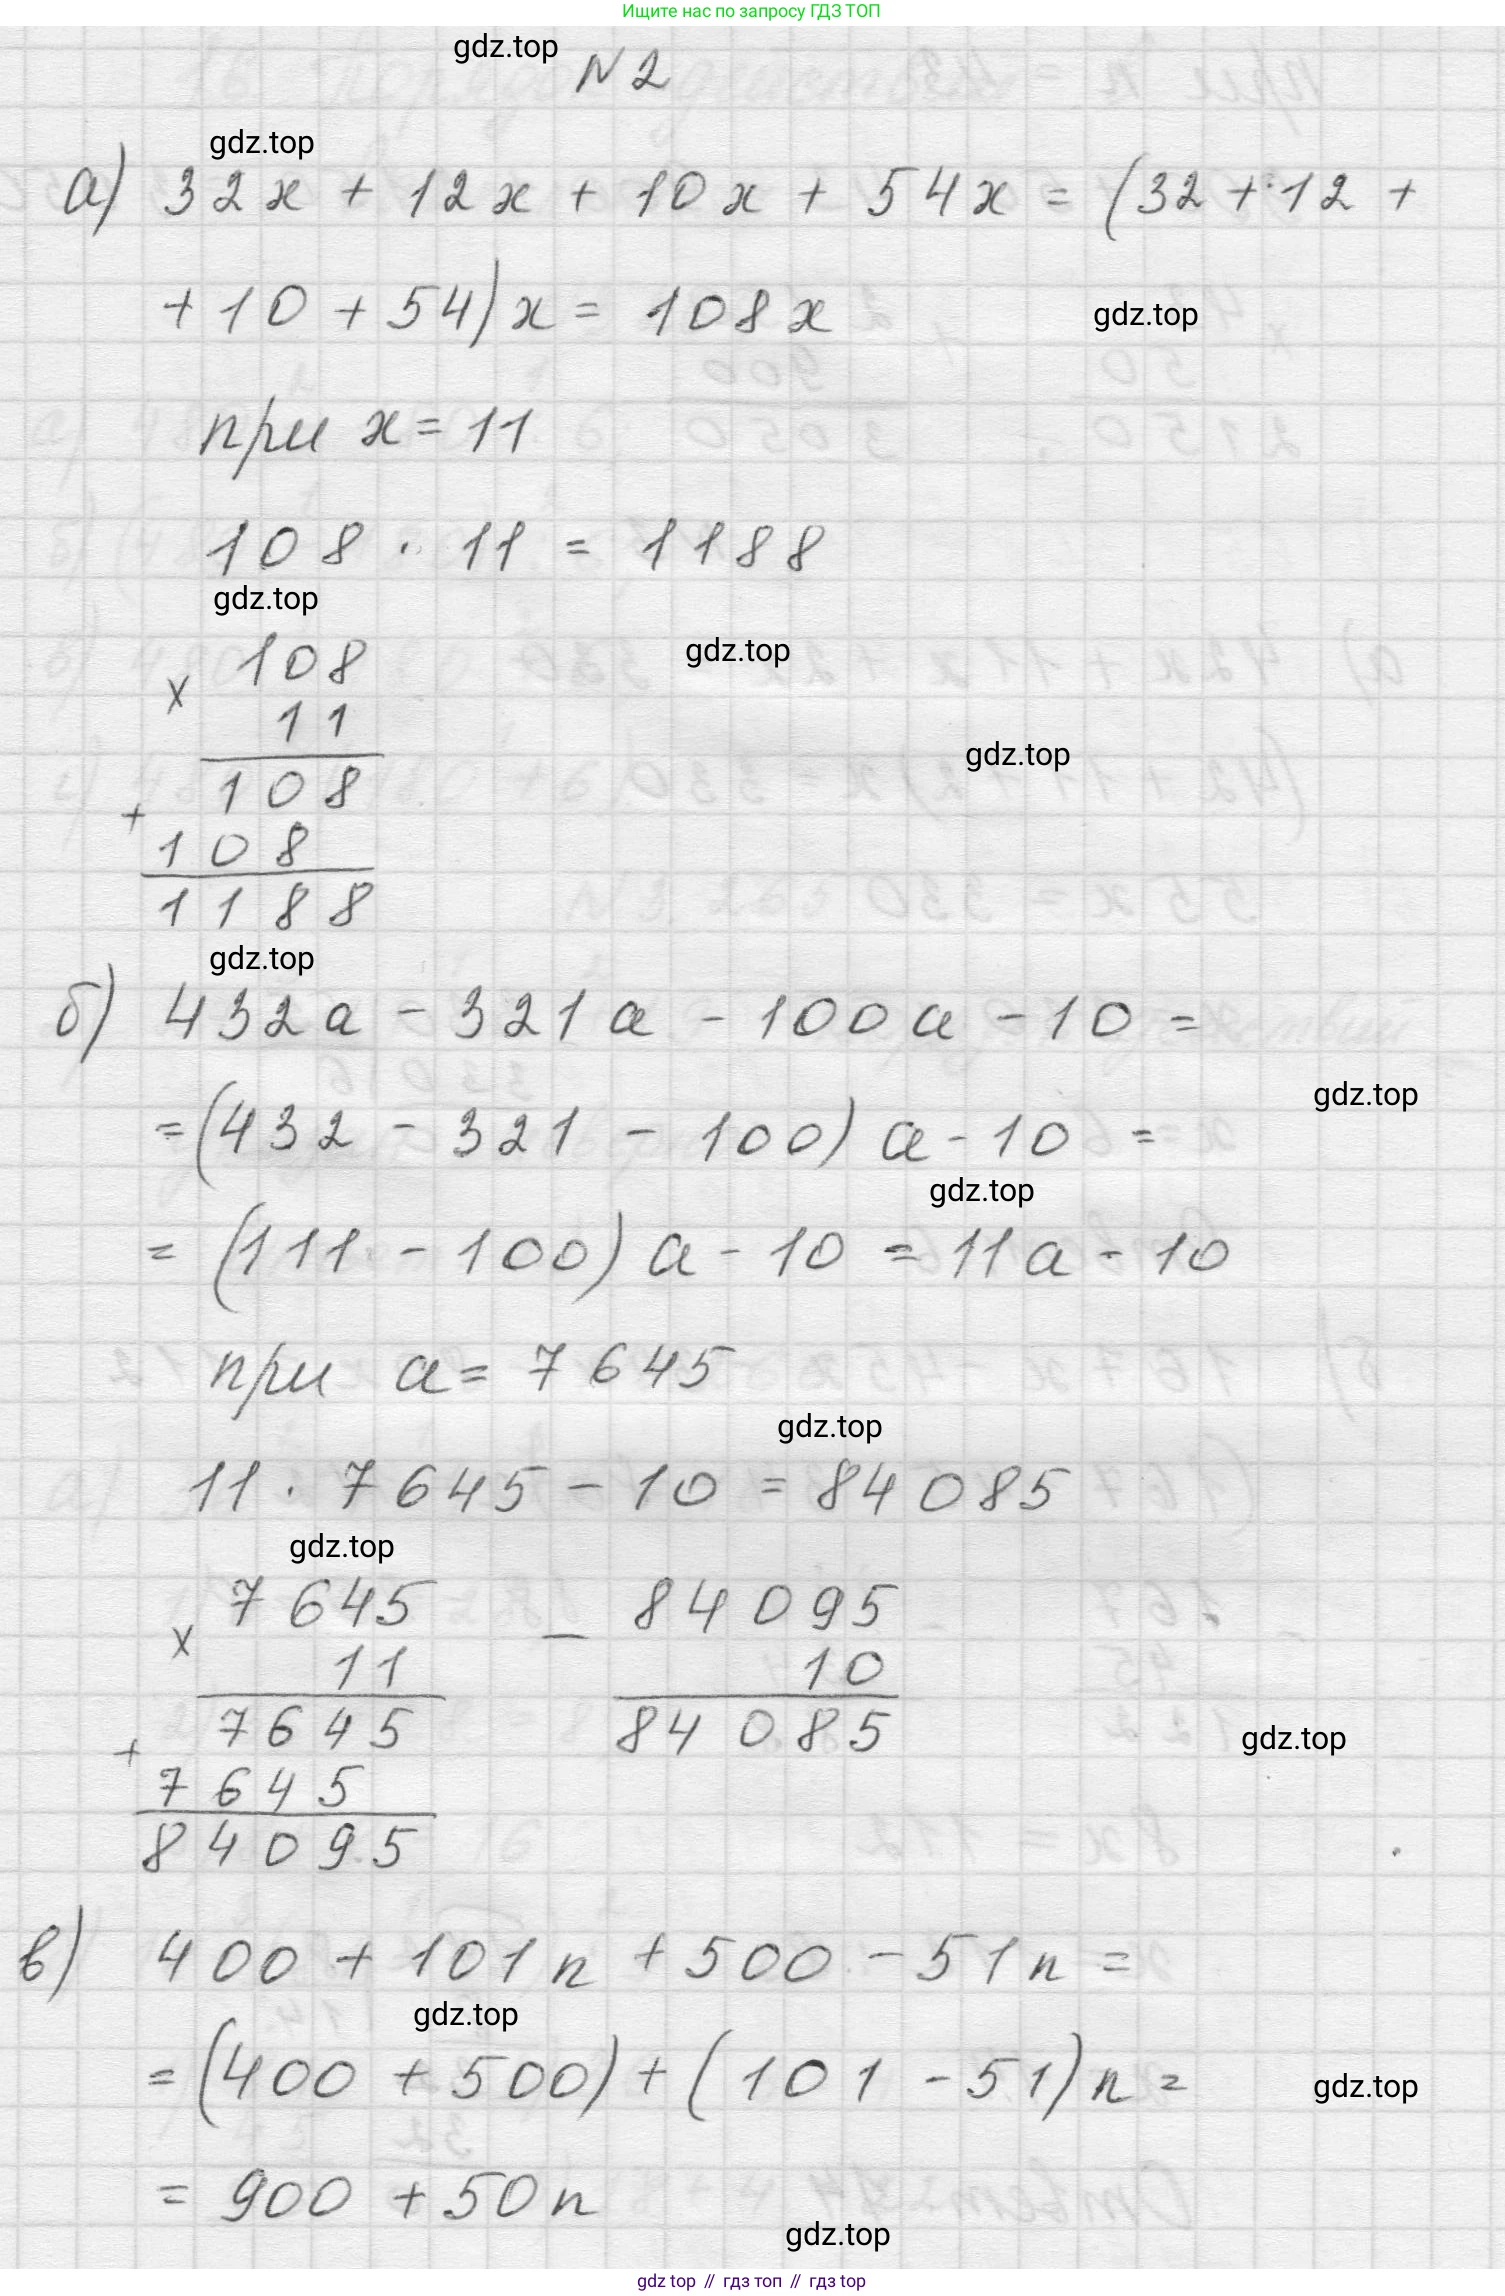 Ищите нас по запросу ГДЗ ТОП
gdz.top
N 2
gdz.top
а) 32x + 12x + 10x + 54x = (32 + 12 +
+ 10 + 54)x = 108x
gdz.top
при x = 11
108 · 11 = 1188
gdz.top
gdz.top
108
x
11
gdz.top
108
+
108
1188
gdz.top
б) 432a - 321a - 100a - 10 =
gdz.top
= (432 - 321 - 100) a - 10 =
gdz.top
= (111 - 100) a - 10 = 11a - 10
при a = 7645
gdz.top
11 · 7645 - 10 = 84085
gdz.top
7645 84095
x -
11 10
7645 84085
gdz.top
+
7645
84095
в) 400 + 101n + 500 - 51n =
gdz.top
= (400 + 500) + (101 - 51)n =
gdz.top
= 900 + 50n
gdz.top
gdz top // гдз топ // гдз top